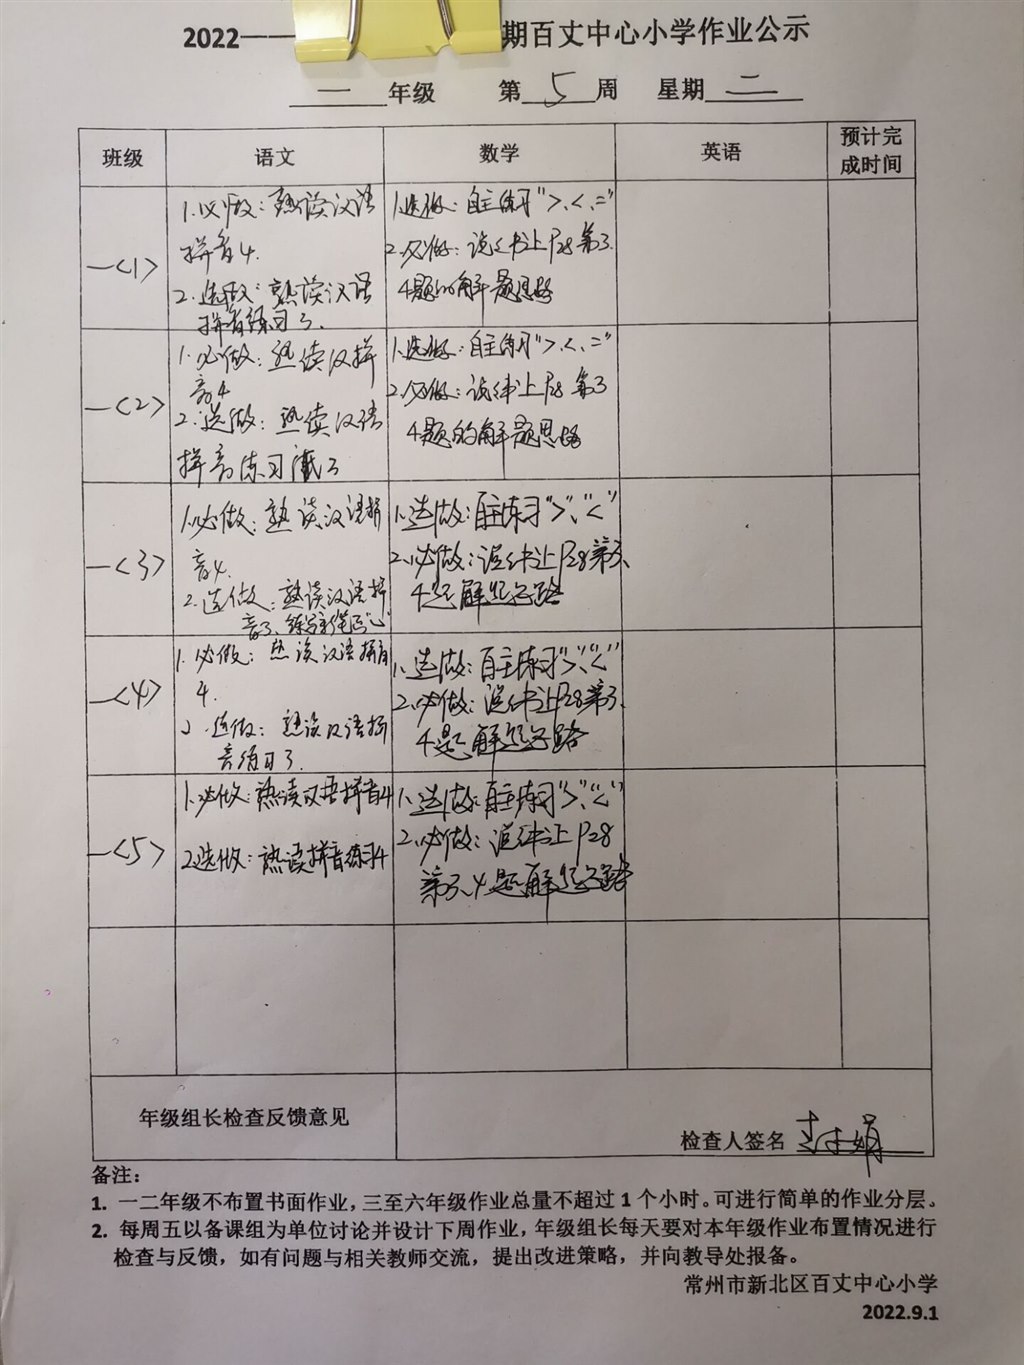 2022—— 期百丈中心小学作业公示
一 年级 第 5 周 星期 二
班级 语文 数学 英语 预计完成时间
一<1>
1.必做：熟读汉语
拼音4.
2.选做：熟读汉语
拼音练习3.
1.选做：自主练习">、<、="
2.必做：说说书上P28第3.
4题的解题思路
一<2>
1.必做：熟读汉拼
音4
2.选做：熟读汉语
拼音练习 3
1.选做：自主练习">、<、="
2.必做：说说书上P28第3
4题的解题思路
一<3>
1.必做：熟读汉语拼
音4.
2.选做：熟读汉语拼
音3、
1.选做：自主练习">"、"<"
2.必做：说说书上P28第3、
4题解题思路
一<4>
1.必做：熟读汉语拼音
4.
2.选做：熟读汉语拼
音练习3.
1.选做：自主练习">"、"<"
2.必做：说说书上P28第3、
4题解题思路
一<5>
1.必做：熟读汉语拼音4
2.选做：熟读拼音练习4
1.选做：自主练习">"、"<"
2.必做：说说书上P28
第3、4题解题思路
年级组长检查反馈意见
检查人签名
备注：
1. 一二年级不布置书面作业，三至六年级作业总量不超过1个小时。可进行简单的作业分层。
2. 每周五以备课组为单位讨论并设计下周作业，年级组长每天要对本年级作业布置情况进行
检查与反馈，如有问题与相关教师交流，提出改进策略，并向教导处报备。
常州市新北区百丈中心小学
2022.9.1